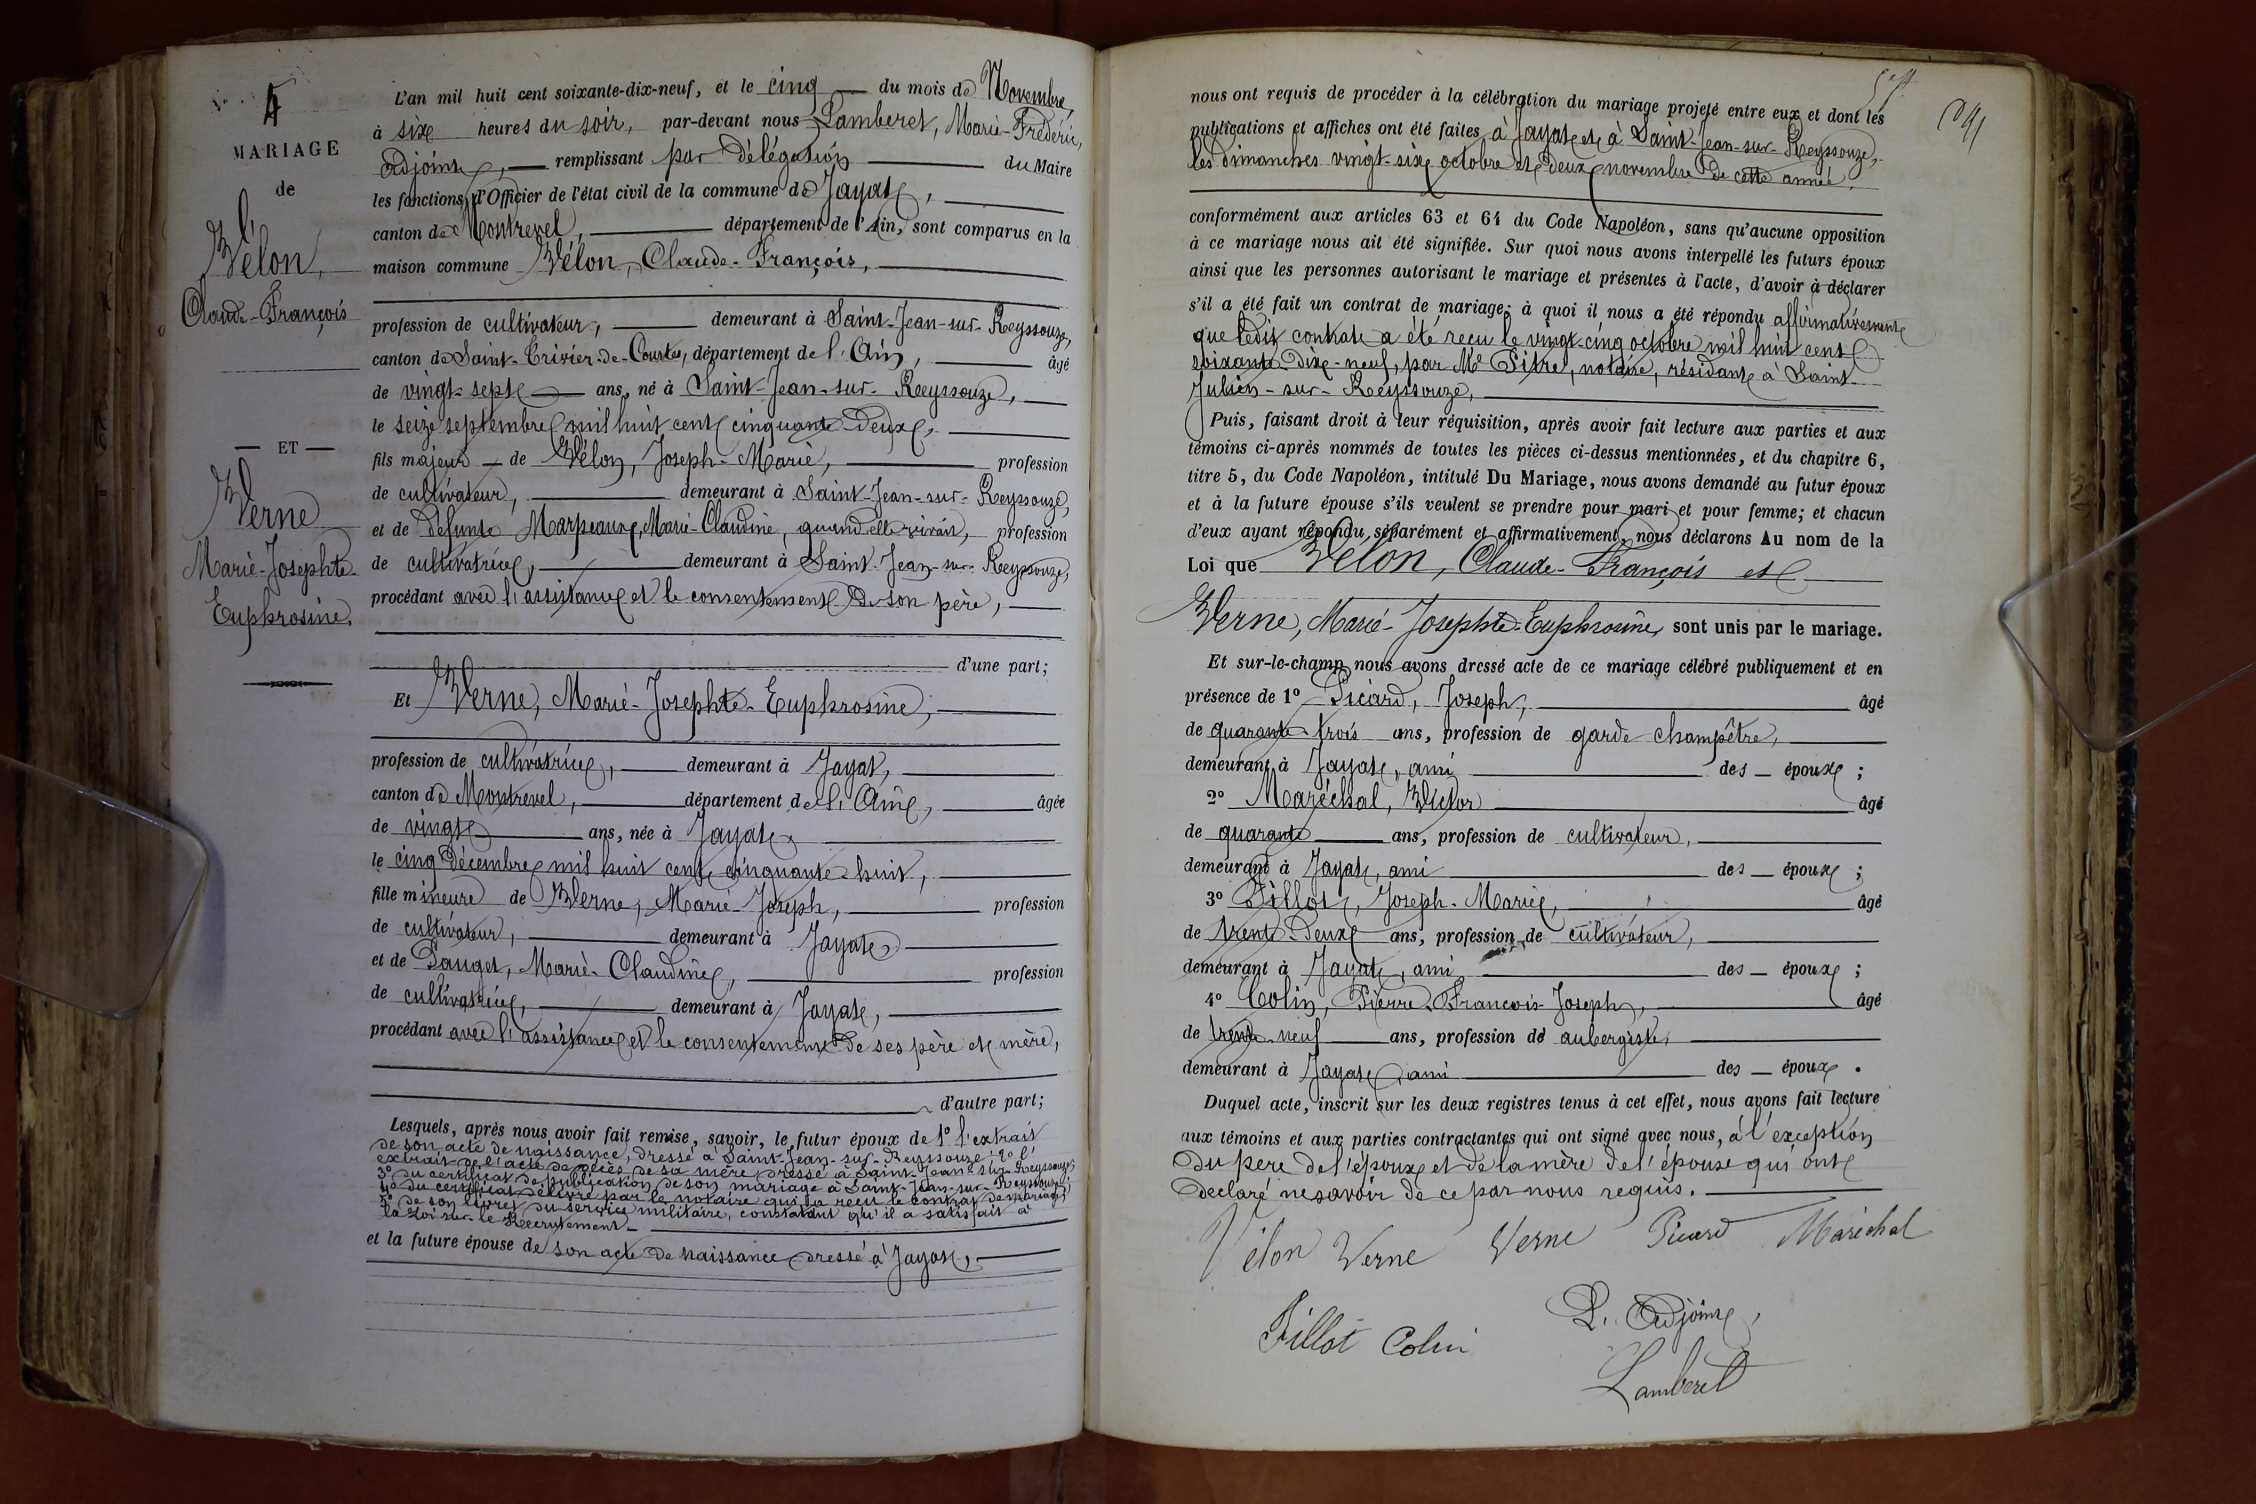 4
MARIAGE
de
Vélon,
Claude-François
— ET —
Verne
Marie-Josephte-
Euphrosine.
L'an mil huit cent soixante-dix-neuf, et le cinq du mois de Novembre,
à six heures du soir, par-devant nous Lamberet, Marie-Frédéric,
adjoint, remplissant par délégation du Maire
les fonctions d'Officier de l'état civil de la commune de Jayat,
canton de Montrevel, département de l'Ain, sont comparus en la
maison commune Vélon, Claude-François,
profession de cultivateur, demeurant à Saint-Jean-sur-Reyssouze,
canton de Saint-Trivier-de-Courtes, département de l'Ain, âgé
de vingt-sept ans, né à Saint-Jean-sur-Reyssouze,
le seize septembre mil huit cent cinquante-deux,
fils majeur de Vélon, Joseph-Marie, profession
de cultivateur, demeurant à Saint-Jean-sur-Reyssouze,
et de défunte Marpeaux, Marie-Claudine, quand elle vivait, profession
de cultivatrice, demeurant à Saint-Jean-sur-Reyssouze,
procédant avec l'assistance et le consentement de son père,
d'une part;
Et Verne, Marie-Josephte-Euphrosine,
profession de cultivatrice, demeurant à Jayat,
canton de Montrevel, département de l'Ain, âgée
de vingt ans, née à Jayat,
le cinq Décembre mil huit cent cinquante-huit,
fille mineure de Verne, Marie-Joseph, profession
de cultivateur, demeurant à Jayat
et de Pauget, Marie-Claudine, profession
de cultivatrice, demeurant à Jayat,
procédant avec l'assistance et le consentement de ses père et mère,
d'autre part;
Lesquels, après nous avoir fait remise, savoir, le futur époux de 1º l'extrait
de son acte de naissance, dressé à Saint-Jean-sur-Reyssouze; 2º l'
extrait de l'acte de décès de sa mère, dressé à Saint-Jean-sur-Reyssouze;
3º du certificat de publication de son mariage à Saint-Jean-sur-Reyssouze;
4º du certificat délivré par le notaire qui a reçu le contrat de mariage;
5º de son livret du service militaire, constatant qu'il a satisfait à
la Loi sur le Recrutement.
et la future épouse de son acte de naissance dressé à Jayat,
nous ont requis de procéder à la célébration du mariage projeté entre eux et dont les
publications et affiches ont été faites à Jayat et à Saint-Jean-sur-Reyssouze,
les dimanches vingt-six octobre et deux novembre de cette année.
conformément aux articles 63 et 64 du Code Napoléon, sans qu'aucune opposition
à ce mariage nous ait été signifiée. Sur quoi nous avons interpellé les futurs époux
ainsi que les personnes autorisant le mariage et présentes à l'acte, d'avoir à déclarer
s'il a été fait un contrat de mariage; à quoi il nous a été répondu affirmativement
que ledit contrat a été reçu le vingt-cinq octobre mil huit cent
soixante-dix-neuf, par Me Pitre, notaire, résidant à Saint-
Julien-sur-Reyssouze,
Puis, faisant droit à leur réquisition, après avoir fait lecture aux parties et aux
témoins ci-après nommés de toutes les pièces ci-dessus mentionnées, et du chapitre 6,
titre 5, du Code Napoléon, intitulé Du Mariage, nous avons demandé au futur époux
et à la future épouse s'ils veulent se prendre pour mari et pour femme; et chacun
d'eux ayant répondu séparément et affirmativement, nous déclarons Au nom de la
Loi que Vélon, Claude-François et
Verne, Marie-Josephte-Euphrosine, sont unis par le mariage.
Et sur-le-champ nous avons dressé acte de ce mariage célébré publiquement et en
présence de 1º Picard, Joseph, âgé
de quarante-trois ans, profession de garde champêtre,
demeurant à Jayat, ami des époux;
2º Maréchal, Victor âgé
de quarante ans, profession de cultivateur,
demeurant à Jayat, ami des époux;
3º Fillot, Joseph-Marie, âgé
de trente-deux ans, profession de cultivateur,
demeurant à Jayat, ami des époux;
4º Colin, Pierre-François-Joseph, âgé
de trente-neuf ans, profession de aubergiste,
demeurant à Jayat, ami des époux.
Duquel acte, inscrit sur les deux registres tenus à cet effet, nous avons fait lecture
aux témoins et aux parties contractantes qui ont signé avec nous, à l'exception
du père de l'époux et de la mère de l'épouse qui ont
déclaré ne savoir de ce par nous requis.
Vélon Verne Verne Picard Maréchal
Fillot Colin
L. Adjoint,
Lamberet